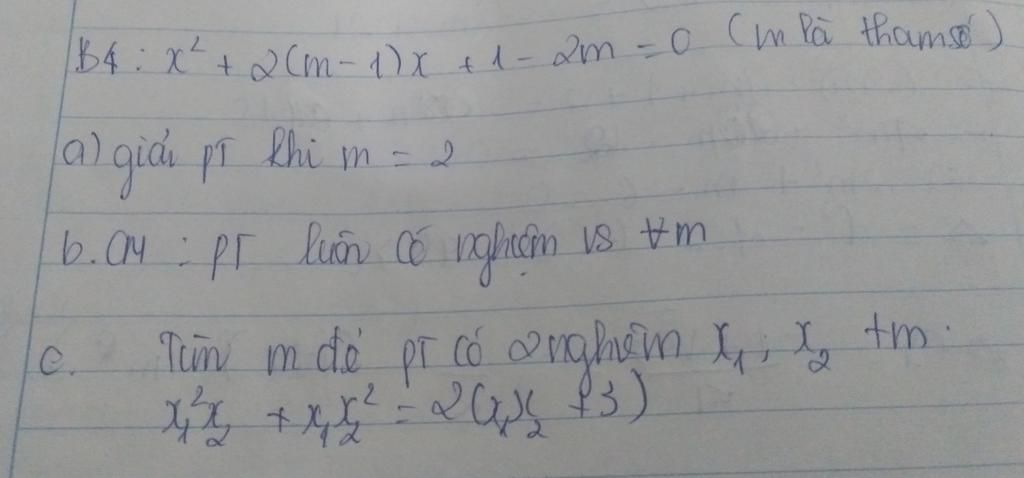 B4: x² + 2(m-1)x + 1 - 2m = 0 (m là tham số)
a) giải pT khi m = 2
b. CM : pT luôn có nghiệm vs ∀m
c. Tìm m để pT có 2 nghiệm x₁, x₂ +m.
x₁²x₂ + x₁x₂² = 2(x₁x₂ + 3)